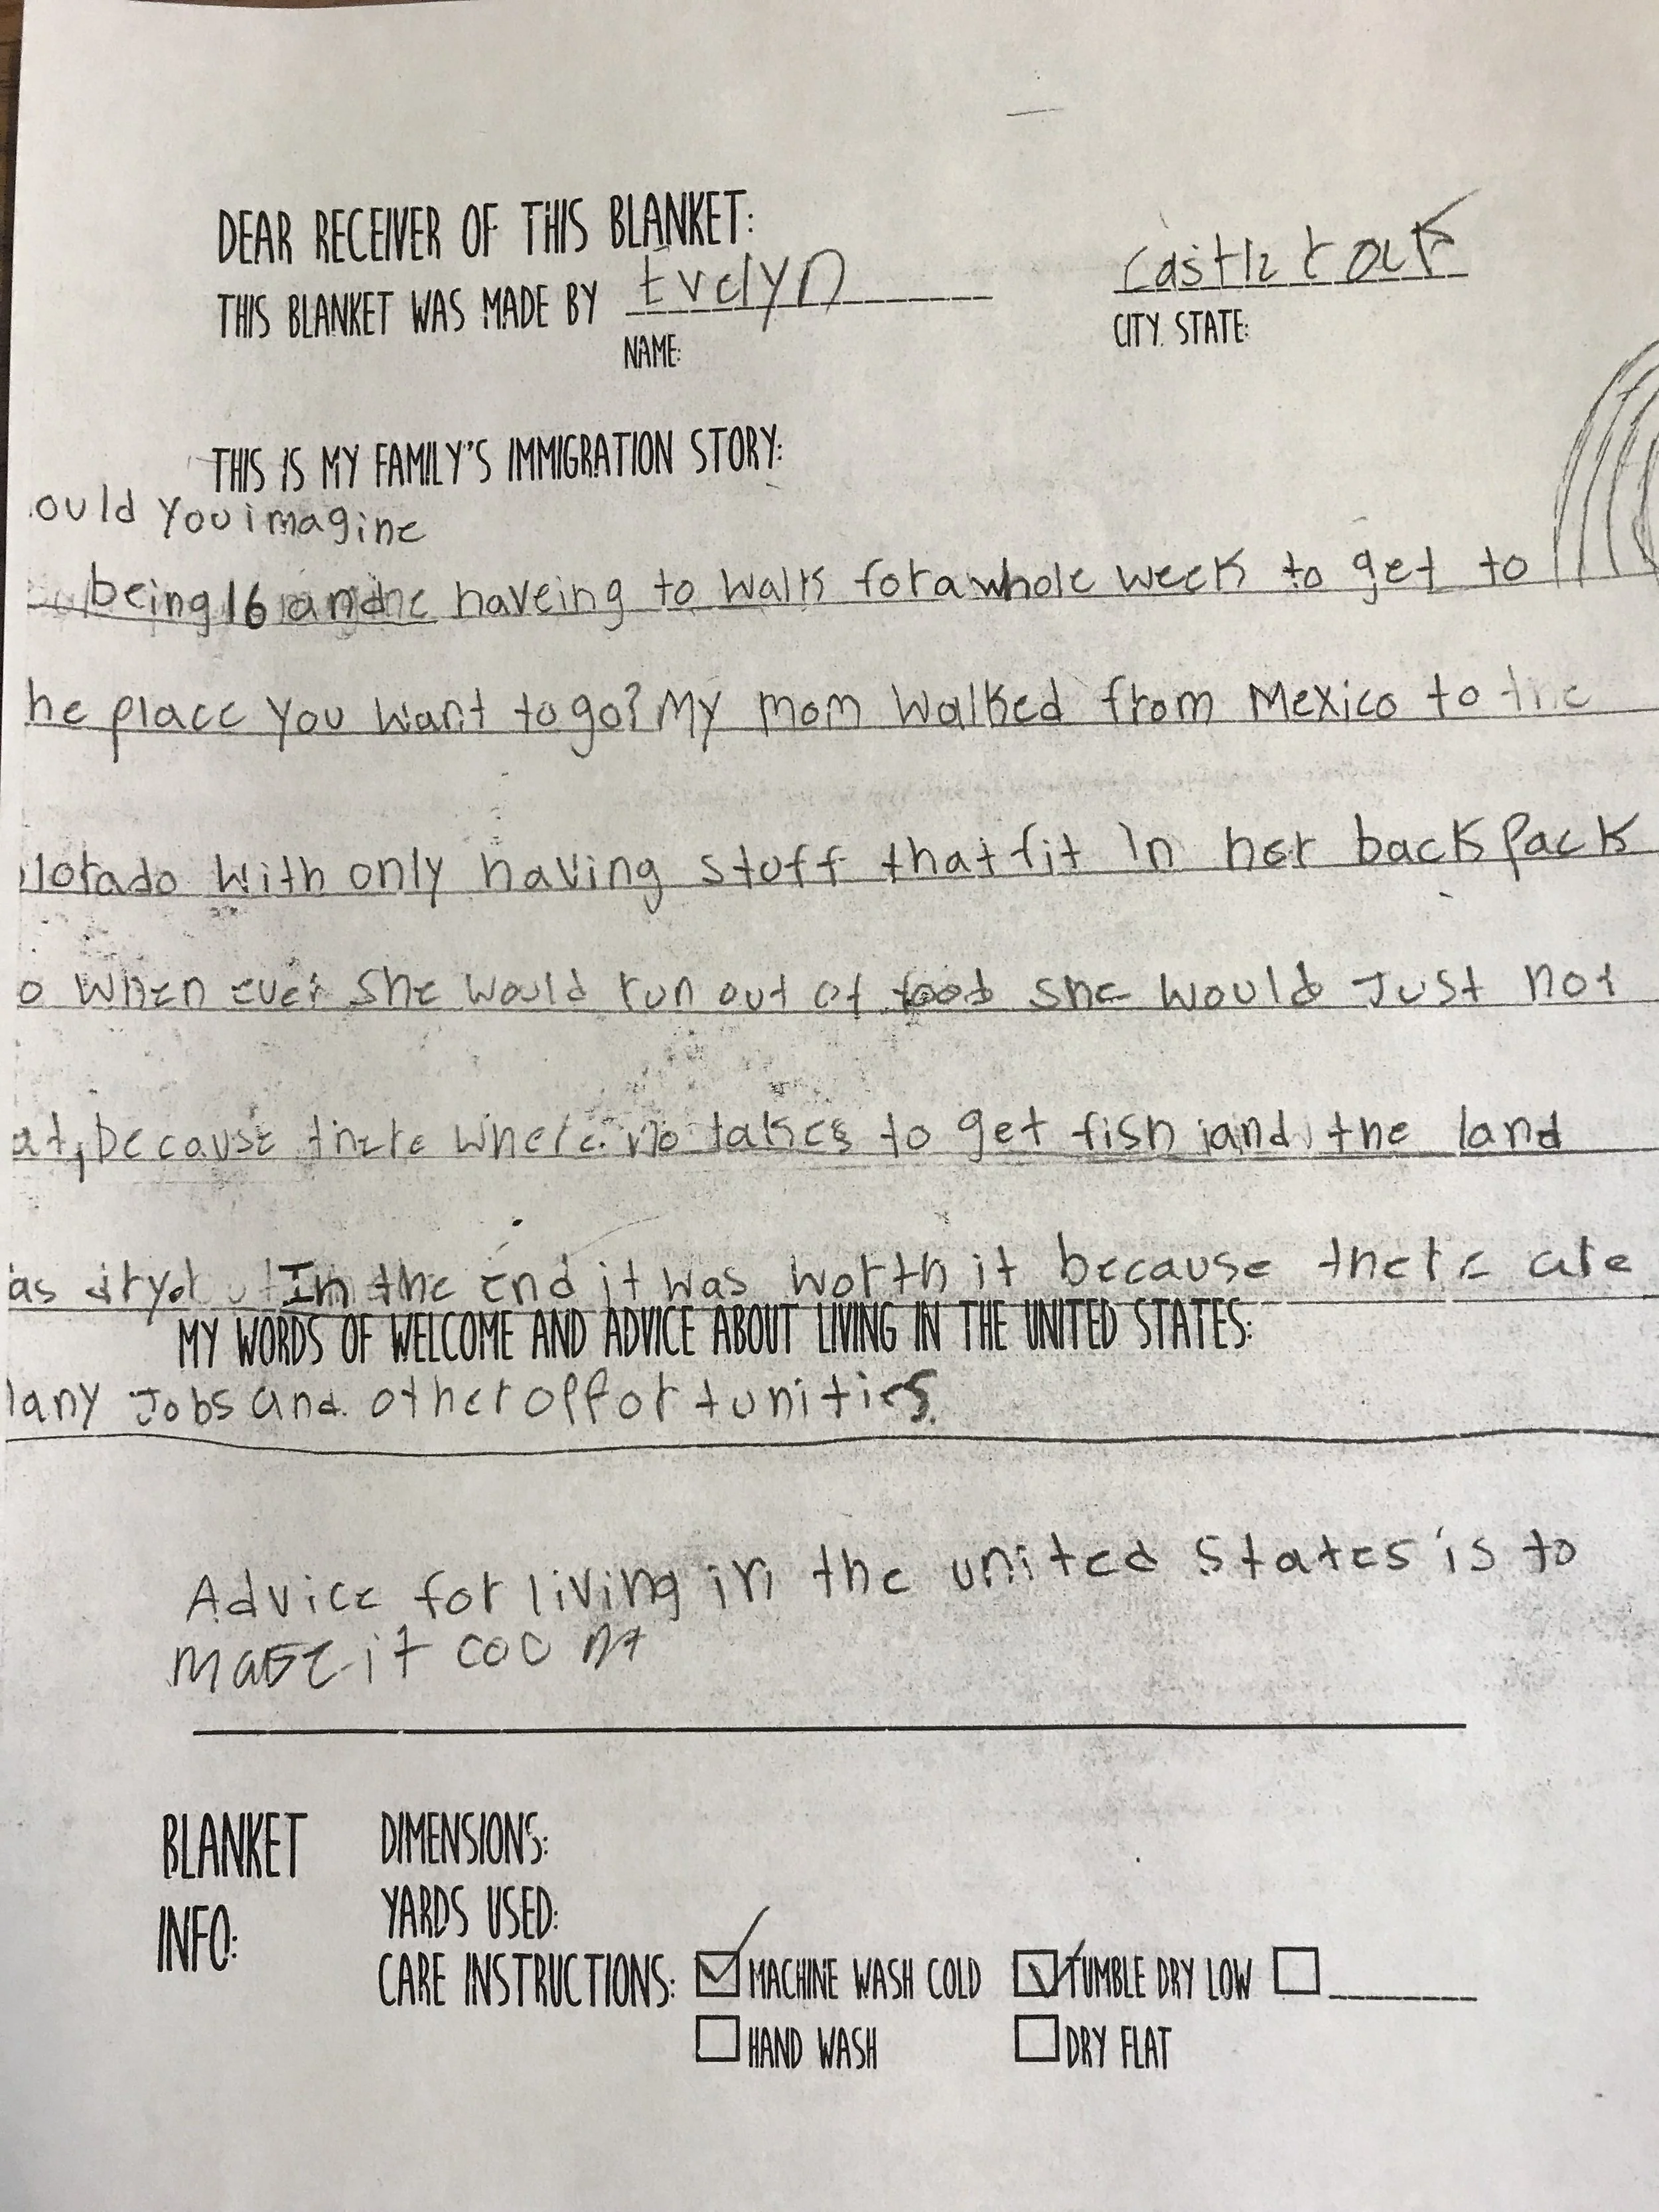 DEAR RECEIVER OF THIS BLANKET:
THIS BLANKET WAS MADE BY Evelyn
Castle rock
NAME:
CITY, STATE:
THIS IS MY FAMILY'S IMMIGRATION STORY:
ould you imagine
being 16 and haveing to walk for a whole week to get to
he place you want to go? My mom walked from Mexico to the
lorado with only having stuff that fit in her back pack
o when ever she would run out of food she would Just not
at, because there where no lakes to get fish and the land
as dryd In the end it was worth it because there are
MY WORDS OF WELCOME AND ADVICE ABOUT LIVING IN THE UNITED STATES:
any Jobs and other opportunities.
Advice for living in the united states is to
make it count
BLANKET INFO:
DIMENSIONS:
YARDS USED:
CARE INSTRUCTIONS: MACHINE WASH COLD TUMBLE DRY LOW
HAND WASH DRY FLAT